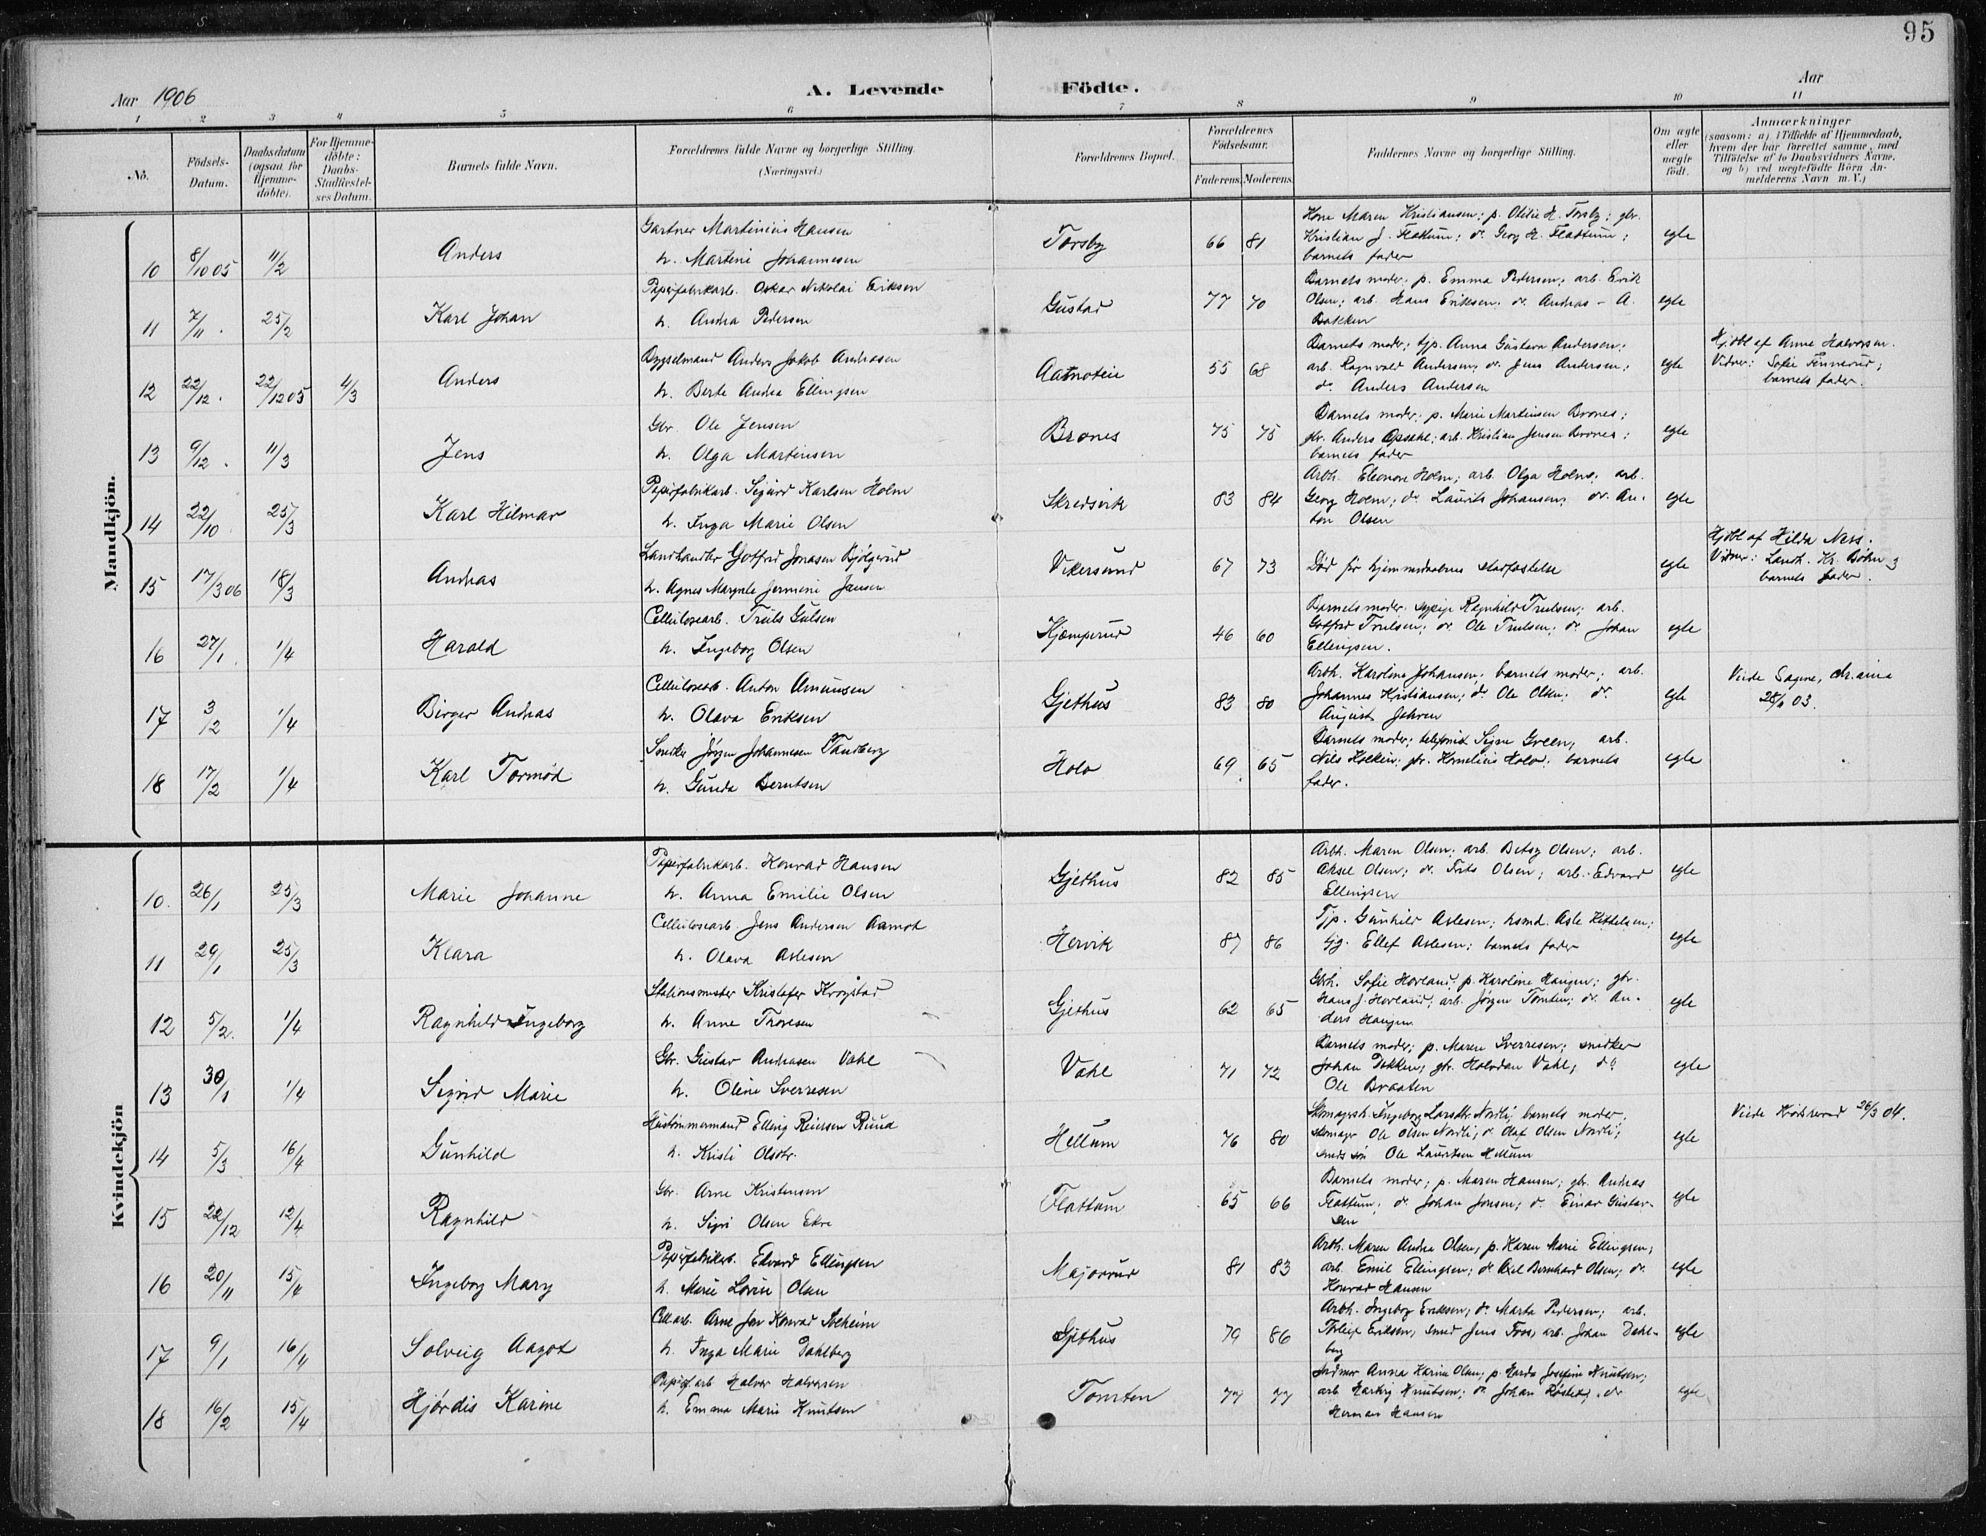 95
Aar 1906
A. Levende Födte.
Aar
1 2 3 4 5 6 7 8 9 10 11
No.
Födsels-Datum.
Daabsdatum (ogsaa for Hjemme-döbte).
For Hjemme-döbte: Daabs-Stadfæstel-ses Datum.
Barnets fulde Navn.
Forældrenes fulde Navne og borgerlige Stilling. (Næringsvei.)
Forældrenes Bopæl.
Forældrenes Födselsaar.
Faderens. Moderens.
Faddernes Navne og borgerlige Stilling.
Om ægte eller uægte födt.
Anmærkninger
(saasom: a) i Tilfælde af Hjemmedaab, hvem der har forrettet samme, med Tilföielse af to Daabsvidners Navne, og b) ved uægtefödte Börn An-melderens Navn m. V.)
Mandkjön.
10 8/10 05 11/2 Anders
Gartner Martinius Hansen
h. Martine Johannesen
Torsby 66 81
Kone Maren Kristiansen; p. Otilie H. Torsby; gbr.
Kristian J. Flattum; do Georg H. Flattum;
barnets fader
egte
11 7/11. 25/2 Karl Johan
Papirfabrikarb. Oskar Nikolai Eriksen
h. Andrea Pedersen
Gustad 77 70
Barnets moder; p. Emma Pedersen; arb. Erik
Olsen; arb. Hans Eriksen; do Andreas - A.
Bakken
egte
12 22/12. 22/12 05 4/3 Anders
Bygselmand Anders Jakob Andreasen
h. Berte Andrea Ellingsen
Aamoteie 55 68
Barnets moder; tjp. Anna Gustava Andersen;
arb. Ragnvald Andersen; do Jens Andersen;
do Anders Andersen
egte
Hjdbt af Anne Halvorsen.
Vidner: Sofie Finnerud;
barnets fader.
13 9/12. 11/3 Jens
Gbr. Ole Jensen
h. Olga Martinsen
Brones 75 75
Barnets moder; p. Marie Martinsen Brones;
gbr. Anders Opsahl; arb. Kristian Jensen Brones;
barnets fader
egte
14 22/10 25/3 Karl Hilmar
Papirfabrikarb. Sigurd Karlsen Holm
h. Inga Marie Olsen
Skredsvik 83 84
Arbh. Eleonore Holm; arb. Olga Holm; arb.
Georg Holm; do Laurits Johansen; do An-
ton Olsen
egte
15 17/3 06 18/3 Andreas
Landhandler Gotfred Jonasen Bjölgerud
h. Agnes Margrete Jermine Jensen
Vikersund 67 73
Død før hjemmedaabens stadfæstelse
egte
Hjdbt af Hilda Ness.
Vidner: Landh. Kr. Bøhn;
barnets fader.
16 27/1. 1/4 Harald
Cellulosearb. Truls Gulsen
h. Ingeborg Olsen
Kjæmperud 46 60
Barnets moder; sypige Ragnhild Trulsen; arb.
Gotfred Trulsen; do Ole Trulsen; do Johan
Ellingsen.
egte
17 3/2 1/4 Birger Andreas
Cellulosearb. Anton Amunsen
h. Olava Eriksen
Gjethus 83 80
Arbh. Karoline Johansen; barnets moder; arb.
Johannes Kristiansen; do Ole Olsen; do
August Jahren
egte
Viede Sagene, Kr.ania
03.
18 17/2 1/4 Karl Tormød
Snedker Jörgen Johannesen Tandberg
h. Gunda Berntsen
Holo 69 65
Barnets moder; telefonist Signe Green; arb.
Nils Kolkin; gbr. Kornelius Holo; barnets
fader.
egte
Kvindekjön
10. 26/1 25/3 Marie Johanne
Papirfabrikarb. Konrad Hansen
h. Anna Emilie Olsen
Gjethus 82 85
Arbh. Maren Olsen; arb. Betsy Olsen; arb.
Aksel Olsen; do Frits Olsen; arb. Edvard
Ellingsen
egte
11 29/1 25/3 Klara
Cellulosearb. Jens Andersen Aamot
h. Olava Aslesen
Hervik 87 86
Tjp. Gunhild Aslesen; hsmd. Asle Kittelsen;
tjg. Ellef Aslesen; barnets fader
egte
12 5/2. 1/4 Ragnhild Ingeborg
Stationsmester Kristofer Krogstad
h. Anne Thoresen
Gjethus 62 65
Gbrh. Sofie Hovland; p. Karoline Haugen; gbr.
Hans J. Hovland; arb. Jørgen Tomten; do An-
ders Haugen
egte
13 30/1 1/4 Sigrid Marie
Gbr. Gustav Andreasen Vahl
h. Oline Sverresen
Vahl 71 72
Barnets moder; p. Maren Sverresen; snedker
Johan Dokken; gbr. Halvdan Vahl; do
Ole Braaten
egte
14 5/3 16/4 Gunhild
Hustömmermand Elling Reiersen Ruud
h. Kristi Olsdtr.
Hellum 76 80
Skomagrsh. Ingeborg Larsdtr Nordli; barnets moder;
skomagr Ole Olsen Nordli; do Olaf Olsen Nordli;
smeds søn Ole Lauritsen Hellum
egte
Viede Krødsrerad 26/3 04.
15 22/12 12/4 Ragnhild
Gbr. Arne Kristensen
h. Sigri Olsen Ekre
Flattum 65 66
Barnets moder; p. Maren Hansen; gbr. Andreas
Flattum; do Johan Jonsen; do Einar Gustav-
sen
egte
16 20/11 15/4 Ingeborg Mary
Papirfabrikarb. Edvard Ellingsen
h. Marie Lovise Olsen
Majorrud 81 83
Arbh. Maren Andrea Olsen; p. Karen Marie Ellingsen;
arb. Emil Ellingsen; do Axel Bernhard Olsen; do
Konrad Hansen
egte
17 9/1 16/4 Solveig Aagot
Cell.arb. Arne Jen Konrad Solheim
h. Inga Marie Dahlberg
Gjethus 79 86
Arbh. Ingeborg Eriksen; do Marte Pedersen; arb.
Tholeif Eriksen, smed Jens Foss; arb. Johan Dahl-
berg
egte
18 16/2 15/4 Hjördis Karine
Papirfarb Halvor Halvorsen
h. Emma Marie Knutsen
Tomten 77 77
Jordmor Anna Karine Olsen; p. Harda Josefine Knutsen;
arb. Harbry Knutsen; do Johan Röslid; do
Herman Hansen
egte